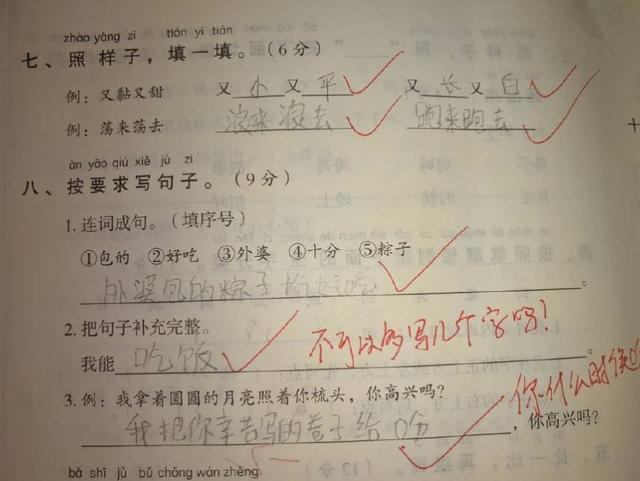 zhào yàng zi tián yi tián
七、照样子，填一填。（6分）
例：又黏又甜 又小又平 又长又白
例：荡来荡去 滚来滚去 跑来跑去
àn yāo qiú xiě jù zi
八、按要求写句子。（9分）
1.连词成句。（填序号）
①包的 ②好吃 ③外婆 ④十分 ⑤粽子
外婆包的粽子 好吃。
2.把句子补充完整。
我能吃饭。
不可以多写几个字吗？
3.例：我拿着圆圆的月亮照着你梳头，你高兴吗？
你什么时候
我把你辛苦写的卷子给，你高兴吗？
bǎ shī jù bǔ chōng wán zhěng